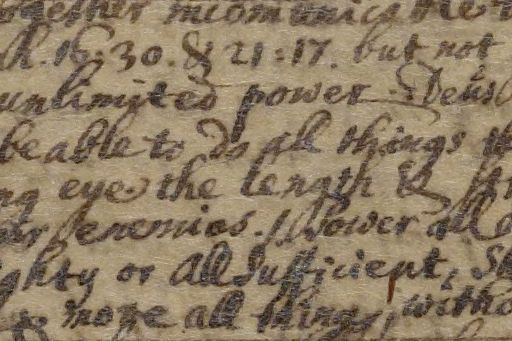 together incommunicable t
d. 16:30. & 21:17. but not
unlimited power. Deus
be able to do all things th
ng eye the length & str
er enemies. Power all
ghty or All Sufficient, Sh
more all things, witho